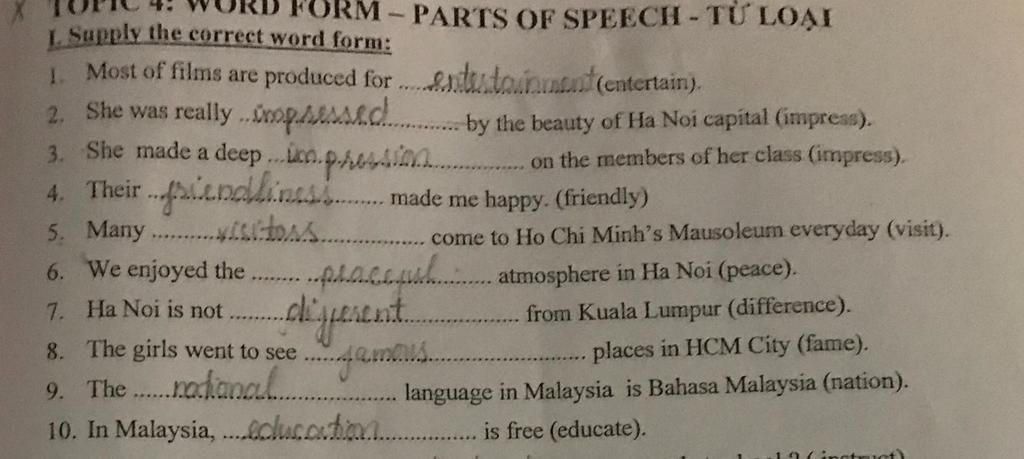 TOPIC 4: WORD FORM – PARTS OF SPEECH - TỪ LOẠI
I. Supply the correct word form:
1. Most of films are produced for ......entertainment(entertain).
2. She was really ..impressed............. by the beauty of Ha Noi capital (impress).
3. She made a deep ...impression................ on the members of her class (impress).
4. Their ...friendliness......... made me happy. (friendly)
5. Many ..........visitors.................. come to Ho Chi Minh's Mausoleum everyday (visit).
6. We enjoyed the ........ ..peaceful.......... atmosphere in Ha Noi (peace).
7. Ha Noi is not .........different.................... from Kuala Lumpur (difference).
8. The girls went to see ......famous............................ places in HCM City (fame).
9. The ......national..................... language in Malaysia is Bahasa Malaysia (nation).
10. In Malaysia, ....education................. is free (educate).
(instruct)